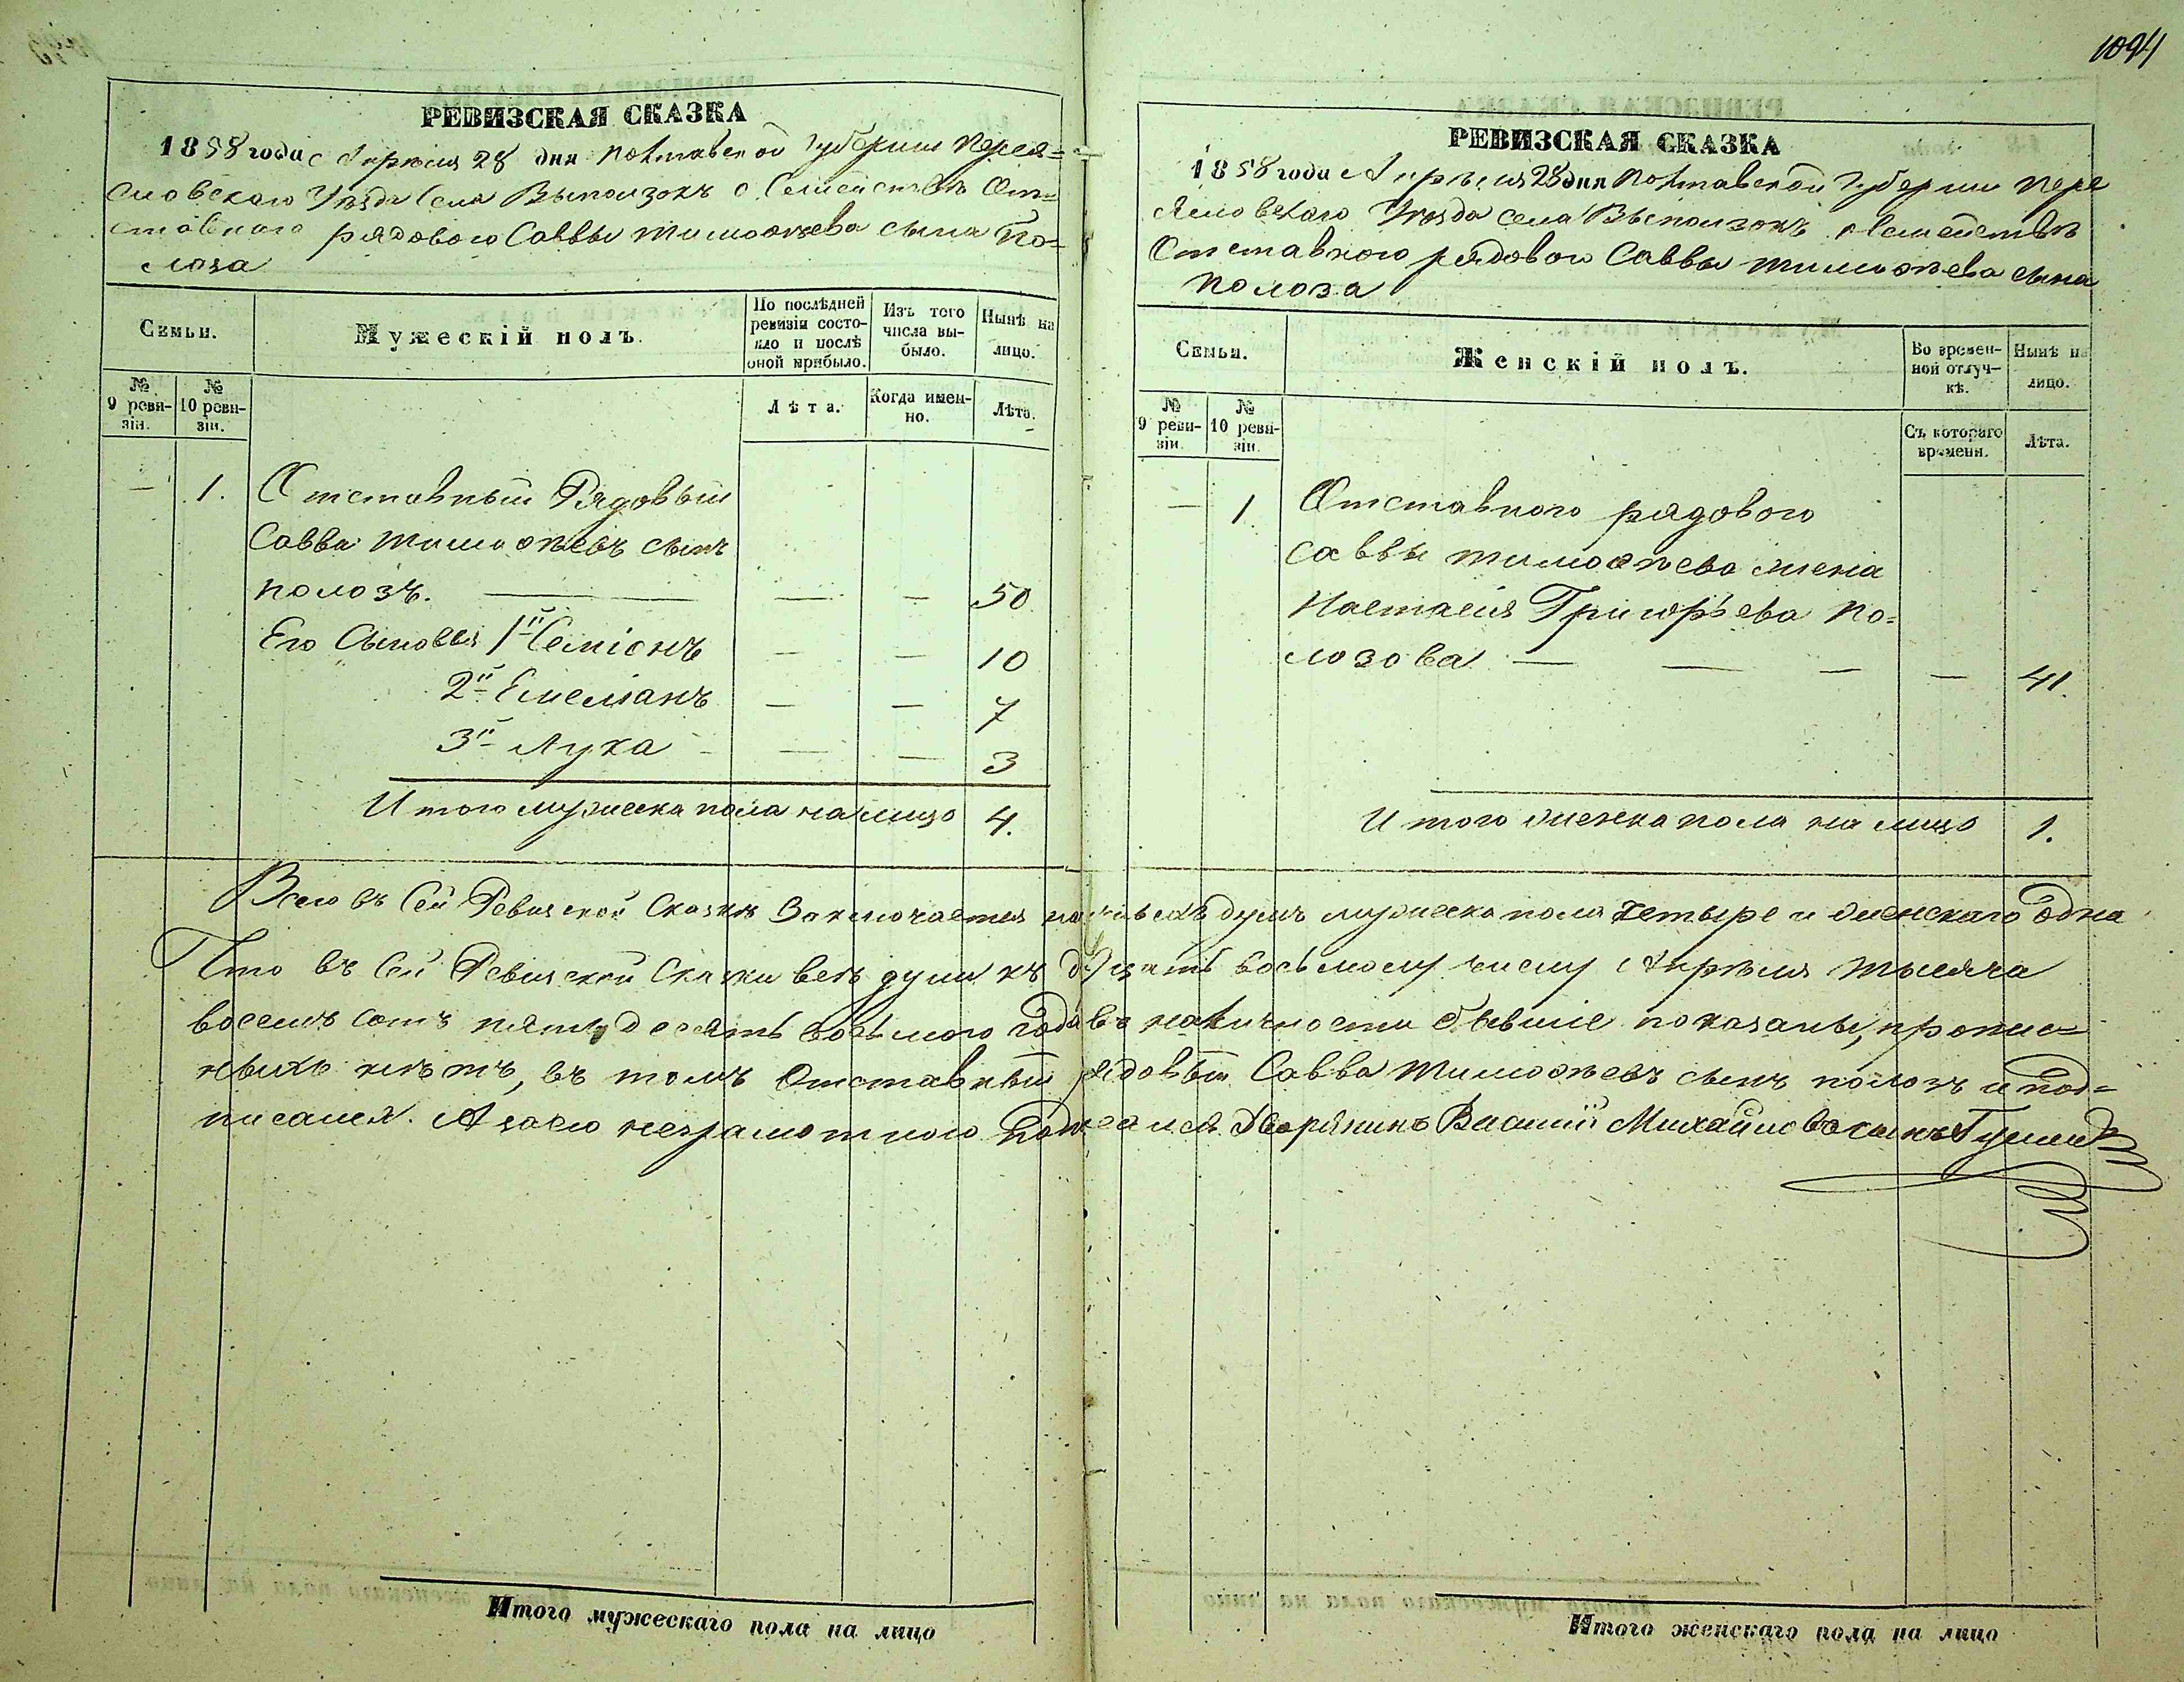 1094
РЕВИЗСКАЯ СКАЗКА
1858 года Апрѣля 28 дня Полтавской Губернии Перея=
словскаго Уѣзда Села Выползокъ о Семействѣ От=
ставнаго рядового Саввы Тимоѳѣева сына По=
лоза
Семьи. Мужескій полъ. По послѣдней ревизіи состояло и послѣ оной прибыло. Изъ того числа выбыло. Нынѣ на лицо.
№ 9 ревизіи. № 10 ревизіи. Лѣта. Когда именно. Лѣта.
— 1. Отставный Рядовый
Савва Тимоѳѣевъ сынъ
Полозъ. — — — 50
Его Сыновья 1й Семіонъ — — 10
2й Емеліанъ — — 7
3й Лука — — 3
Итого мужеска пола налицо 4.
РЕВИЗСКАЯ СКАЗКА
1858 года Апрѣля 28 дня Полтавской Губернии Пере
яславскаго Уѣзда села Выползокъ о семействѣ
Отставного рядового Саввы Тимоѳѣева сына
Полоза
Семьи. Женскій полъ. Во временной отлучкѣ. Нынѣ на лицо.
№ 9 ревизіи. № 10 ревизіи. Съ котораго времени. Лѣта.
— 1 Отставного рядового
Саввы Тимоѳѣева жена
Настасия Григорьева По=
лозова — — — — 41.
Итого женска пола на лицо 1.
Всего въ Сей Ревизской Сказкѣ Заключается наличныхъ душъ мужеска пола Четыре и женскаго Одна
Что въ Сей Ревизской Сказки всѣ души къ двадцать восьмому числу Апрѣля тысяча
восемъ сотъ пятьдесятъ восьмого Года въ наличности бывшіе показаны, пропис=
ныхъ нѣтъ, въ томъ Отставный рядовый Савва Тимоѳѣевъ сынъ Полозъ и под=
писался. А за его неграмотного Подписался Дворянинъ Василій Михайловъ сынъ
Итого мужескаго пола на лицо
Итого женскаго пола на лицо